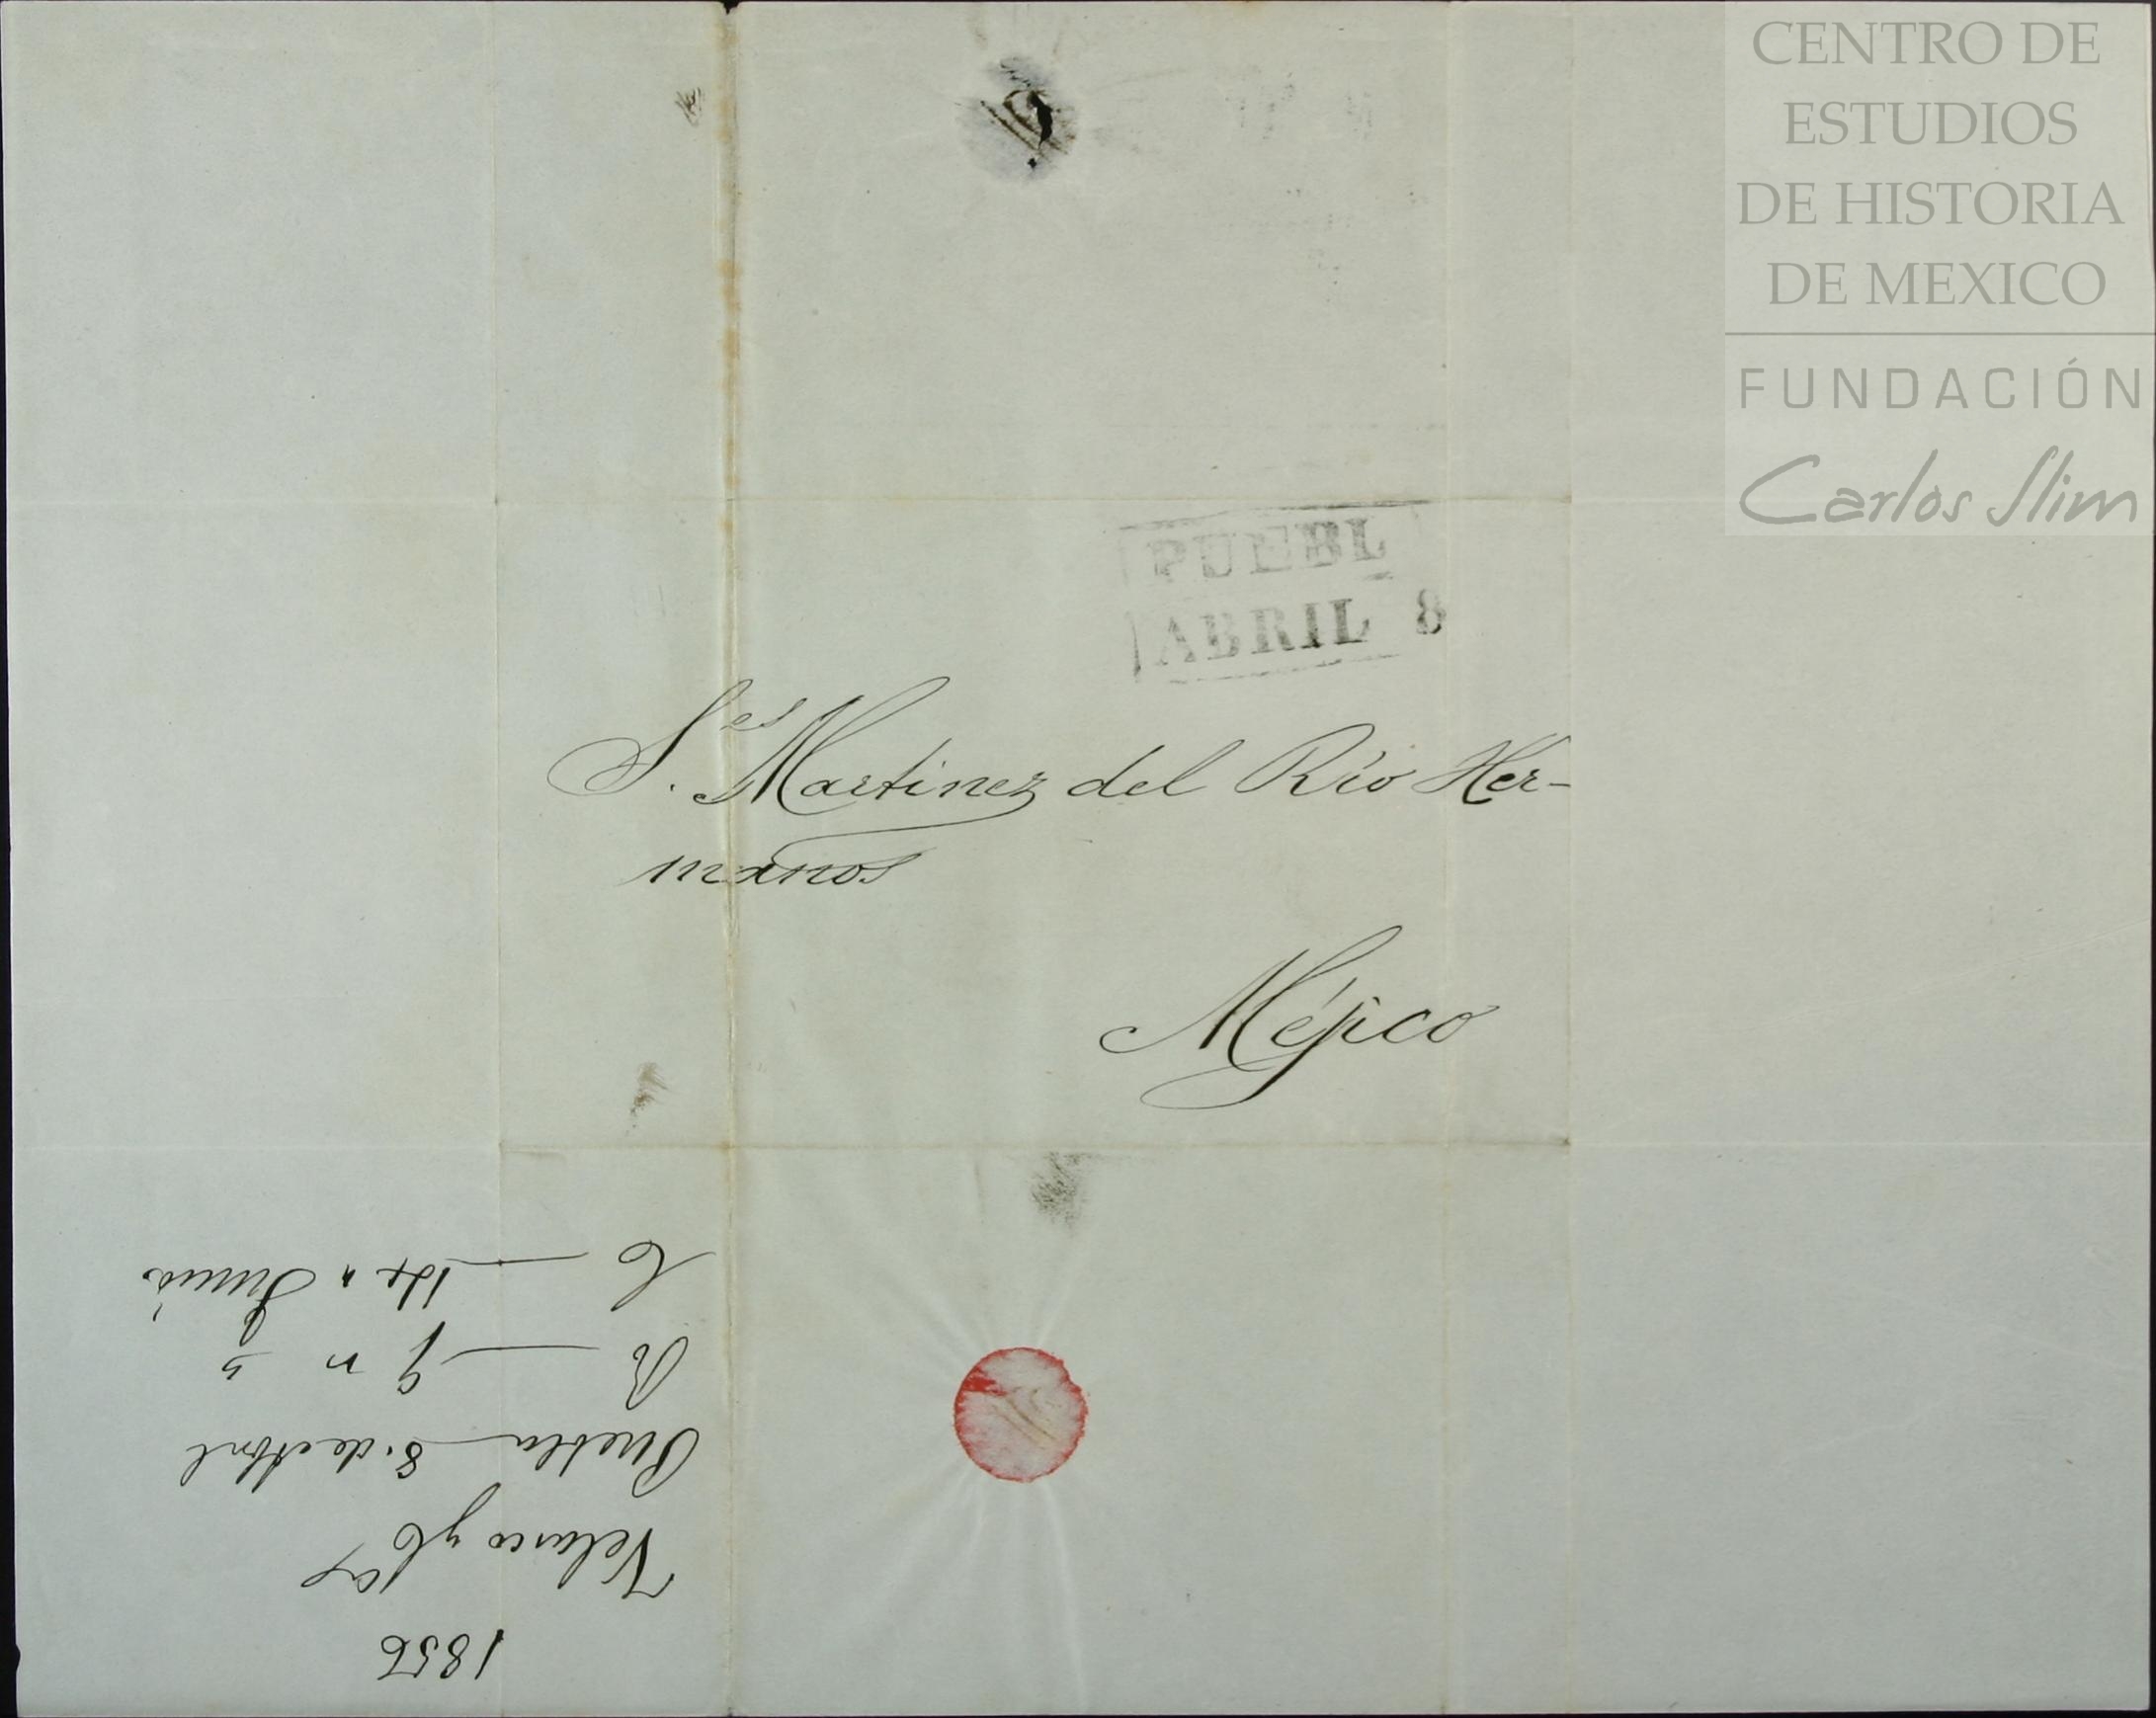 CENTRO DE
ESTUDIOS
DE HISTORIA
DE MEXICO
FUNDACIÓN
Carlos Slim
PUEBL
ABRIL 8
S.es Martinez del Rio Her-
manos
Méjico
1856
Velasco y Ca
Puebla 8. de Abril
R 9 " "
C 14 " Junio